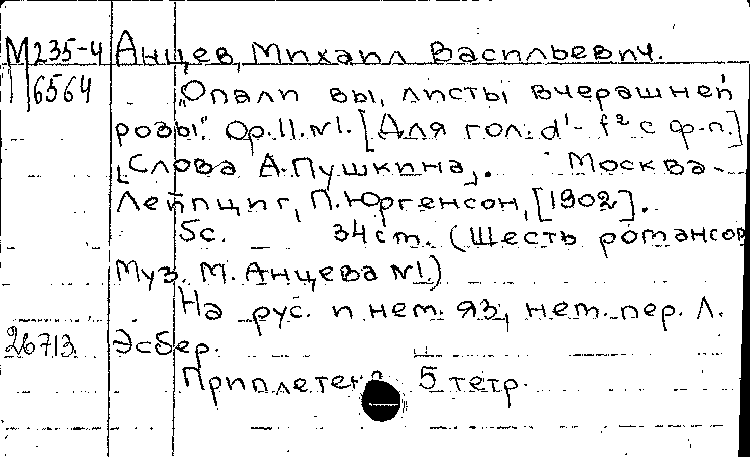 М 235-4 Анцев, Михаил Васильевич.
6564 „Опали вы, листы вчерашней
розы". Op.11.№1. [Для гол: d¹- f² с ф-п.]
[Слова А.Пушкина]. Москва-
Лейпциг, П.Юргенсон, [1902].
5с. 34cm. (Шесть романсов
Муз. М. Анцева №1.)
На рус. и нем. яз, нем. пер. Л.
26713 Эсбер.
Приплетена 5 тетр.